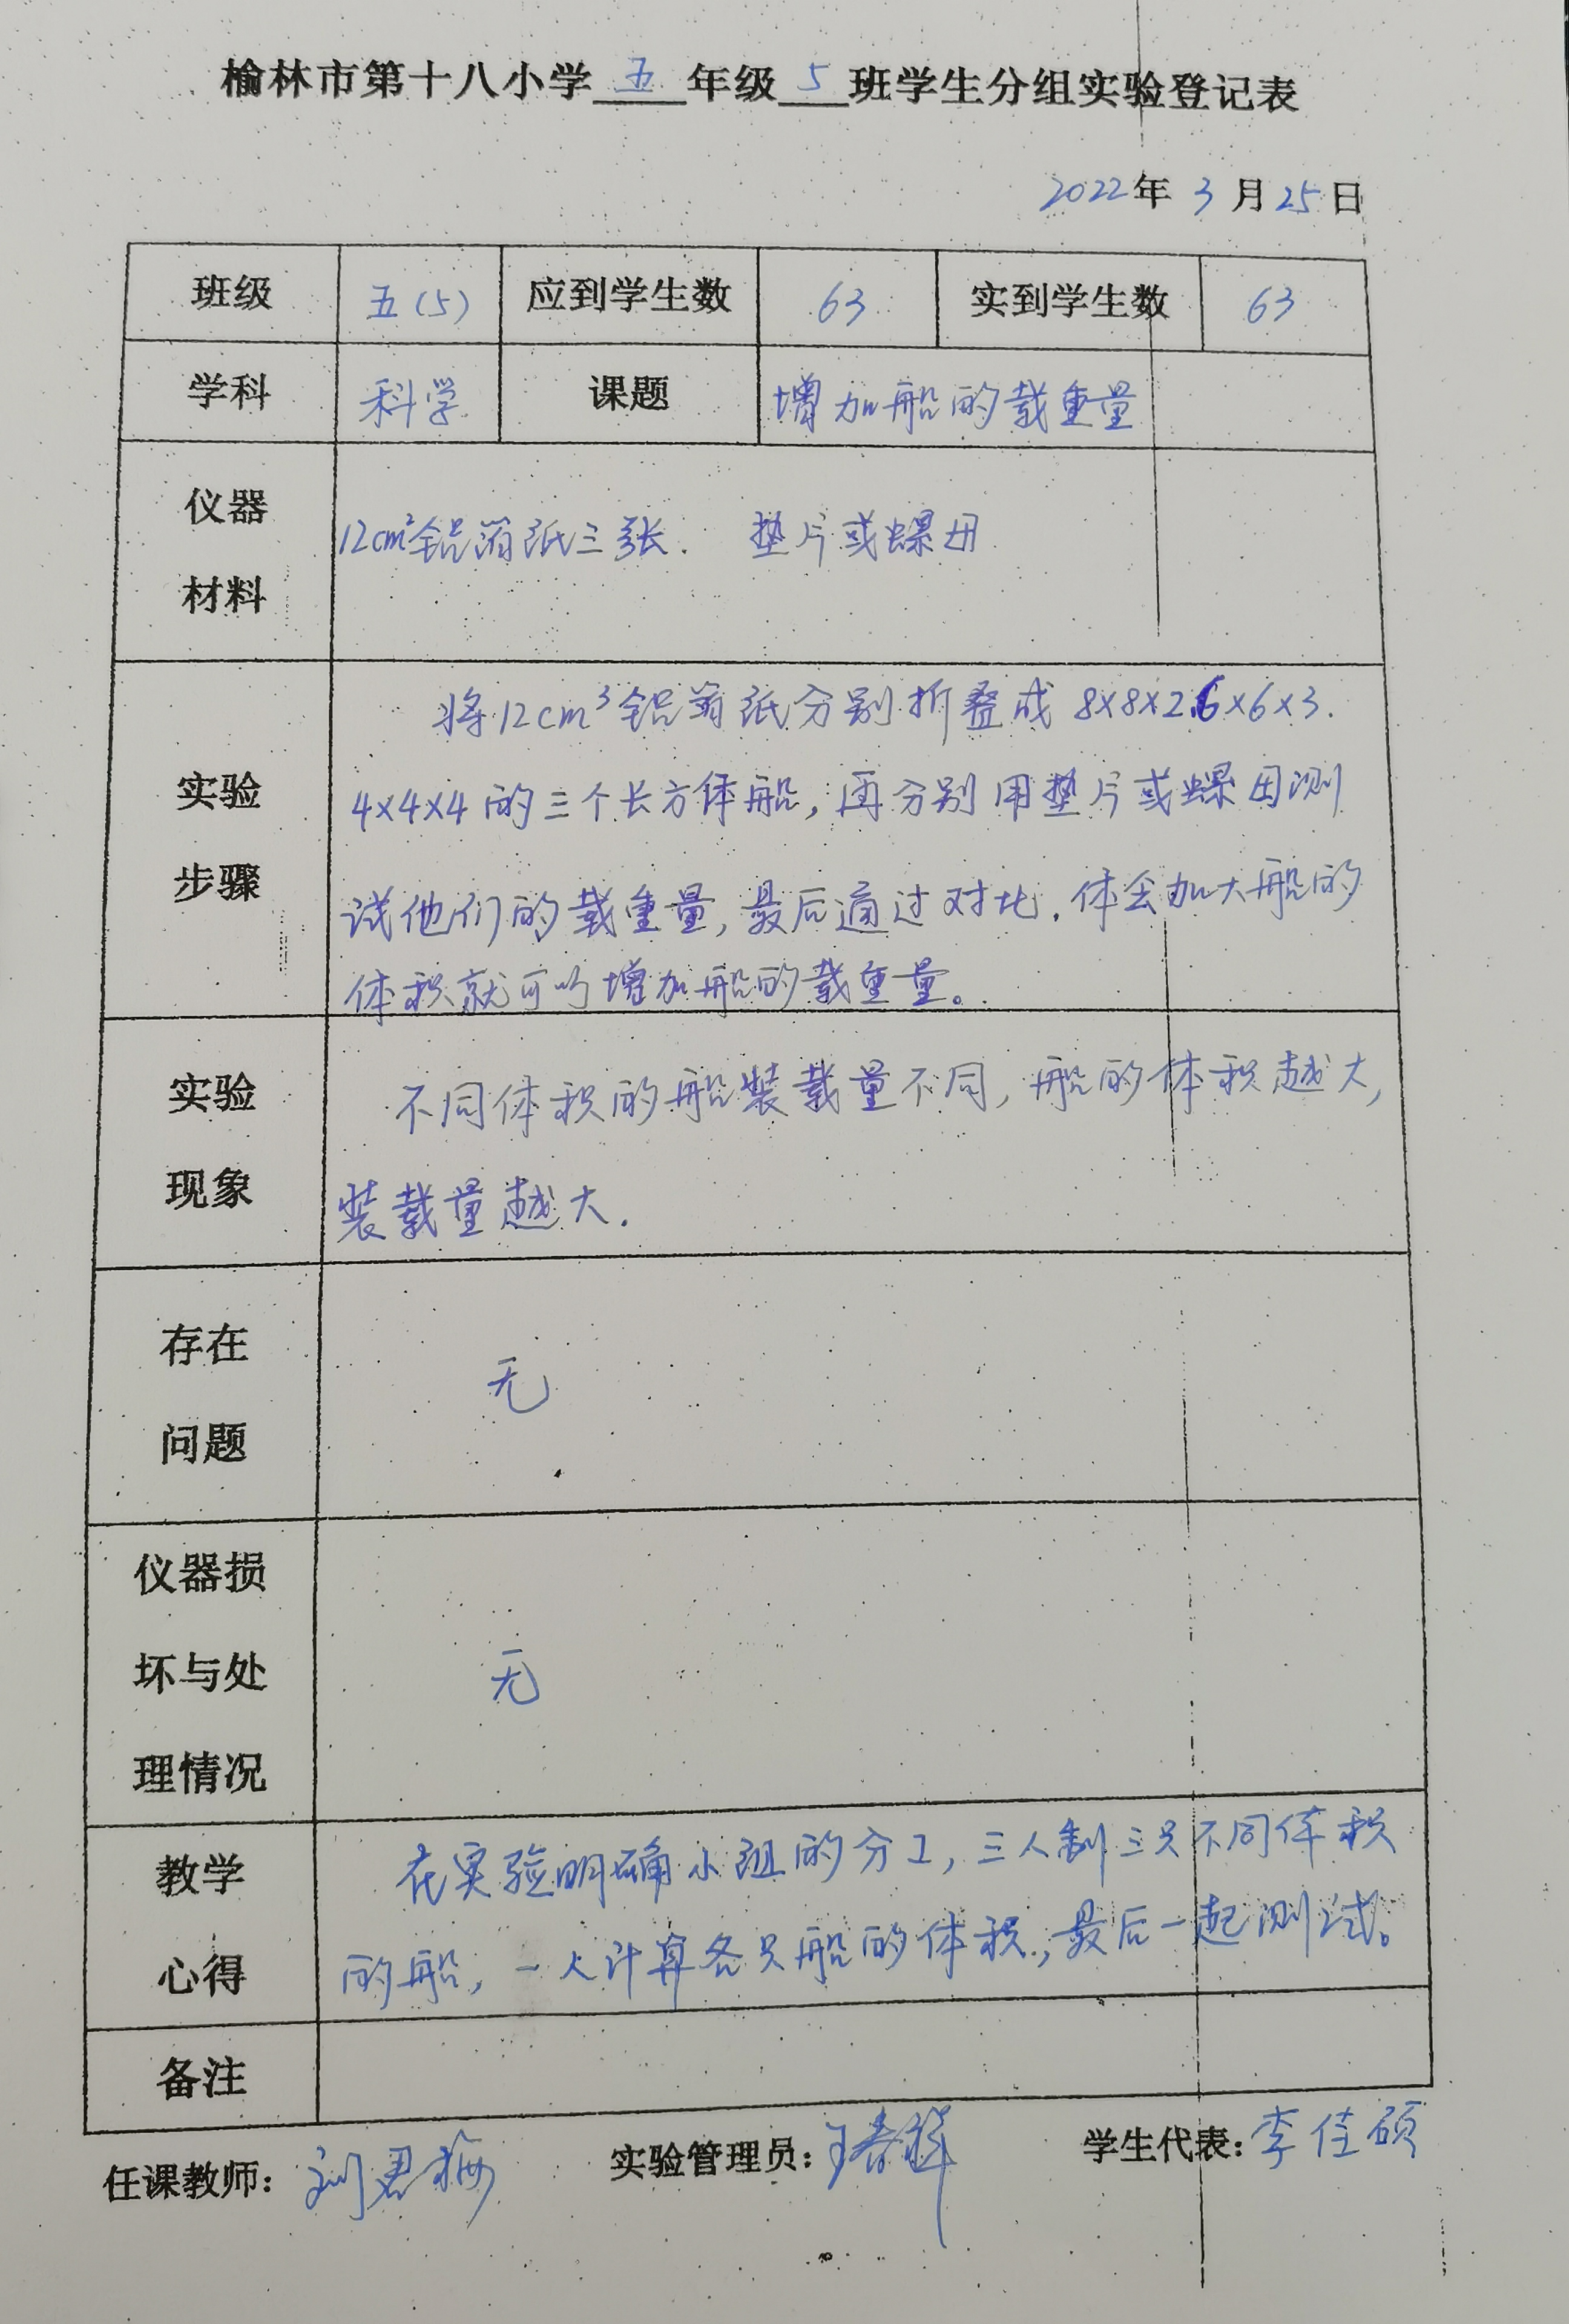 榆林市第十八小学 五 年级 5 班学生分组实验登记表
2022年 3 月 25 日
班级 五(5) 应到学生数 63 实到学生数 63
学科 科学 课题 增加船的载重量
仪器
材料
12cm²铝箔纸三张. 垫片或螺母
实验
步骤
将12cm³铝箔纸分别折叠成 8×8×2.6×6×3.
4×4×4 的三个长方体船,再分别用垫片或螺母测
试他们的载重量,最后通过对比.体会加大船的
体积就可以增加船的载重量。
实验
现象
不同体积的船装载量不同,船的体积越大,
装载量越大.
存在
问题
无
仪器损
坏与处
理情况
无
教学
心得
在实验明确小组的分工,三人制三只不同体积
的船,一人计算各只船的体积,最后一起测试。
备注
任课教师: 刘君梅 实验管理员: 王春 学生代表: 李佳硕